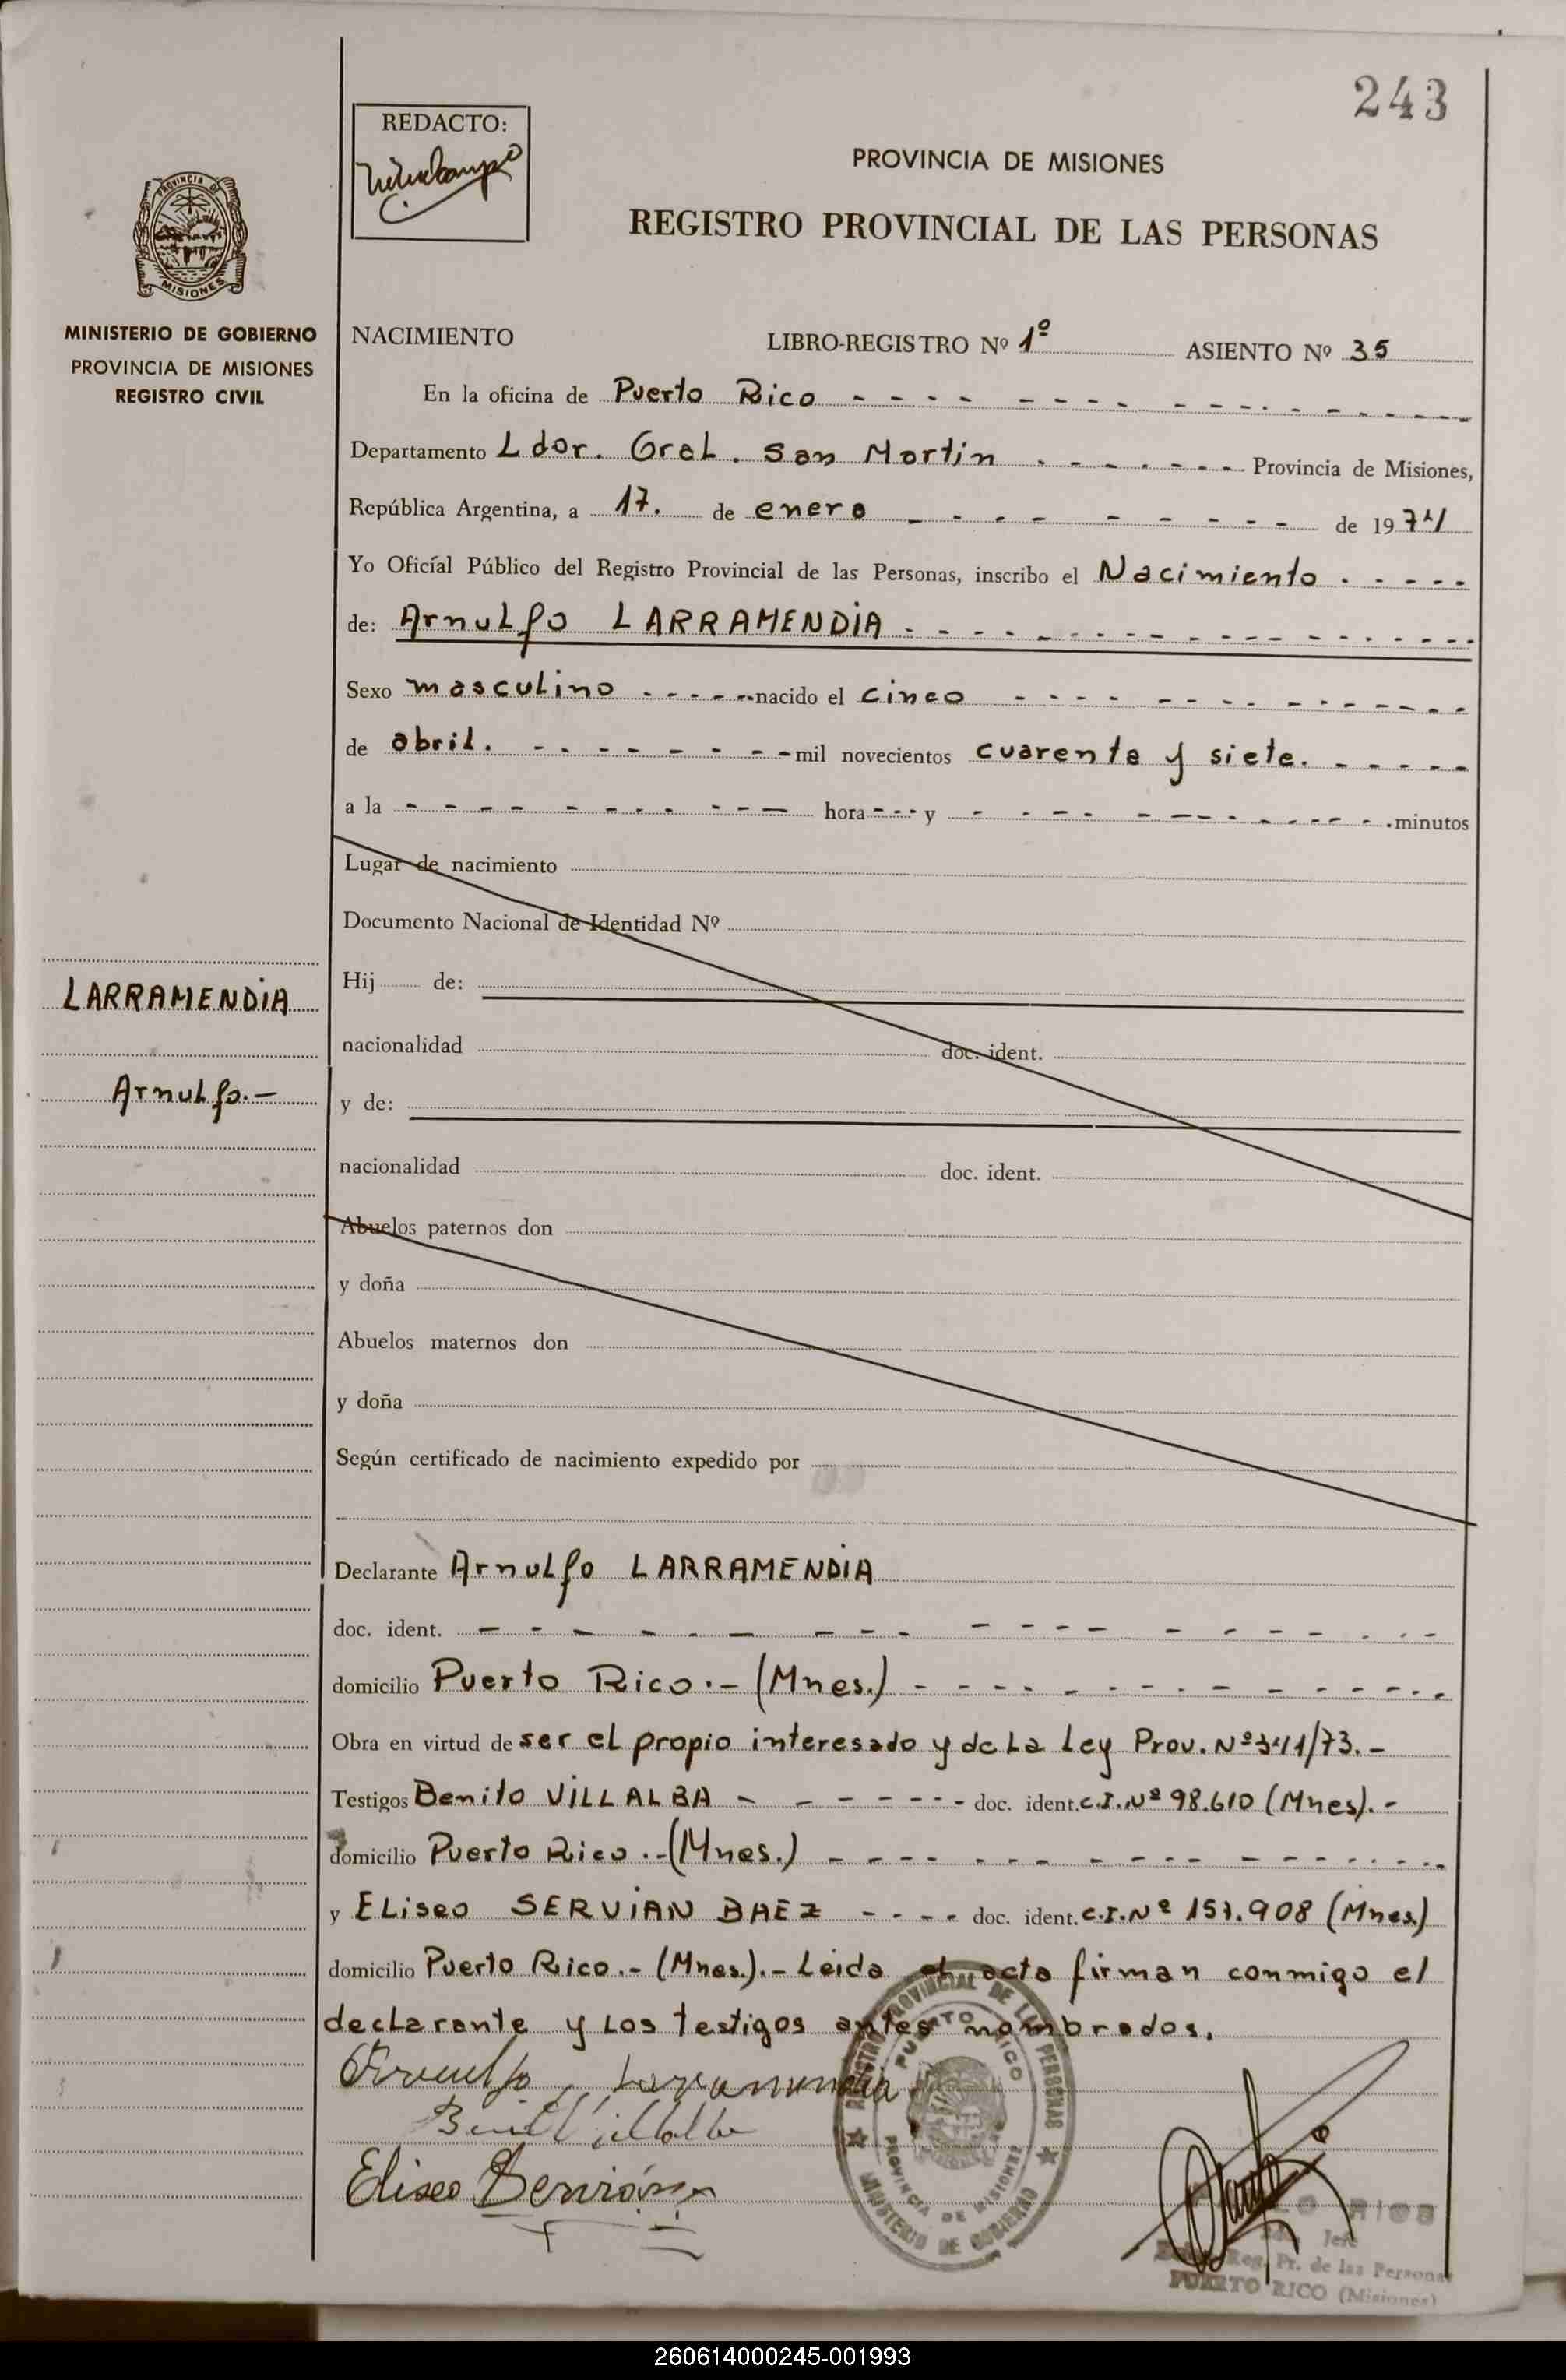 243
REDACTO:
PROVINCIA DE MISIONES
REGISTRO PROVINCIAL DE LAS PERSONAS
PROVINCIA DE
MISIONES
MINISTERIO DE GOBIERNO
PROVINCIA DE MISIONES
REGISTRO CIVIL
LARRAMENDIA
Arnulfo.-
NACIMIENTO LIBRO-REGISTRO Nº 1º ASIENTO Nº 35
En la oficina de Puerto Rico
Departamento Ldor. Gral. San Martin Provincia de Misiones,
República Argentina, a 17. de enero de 1974
Yo Oficial Público del Registro Provincial de las Personas, inscribo el Nacimiento
de: Arnulfo LARRAMENDIA
Sexo masculino nacido el cinco
de abril. mil novecientos cuarenta y siete.
a la hora y minutos
Lugar de nacimiento
Documento Nacional de Identidad Nº
Hij de:
nacionalidad doc. ident.
y de:
nacionalidad doc. ident.
Abuelos paternos don
y doña
Abuelos maternos don
y doña
Según certificado de nacimiento expedido por
Declarante Arnulfo LARRAMENDIA
doc. ident.
domicilio Puerto Rico.- (Mnes.)
Obra en virtud de ser el propio interesado y de La Ley Prov. Nº 341/73.-
Testigos Benito VILLALBA doc. ident. C.I. Nº 98.610 (Mnes).-
domicilio Puerto Rico.-(Mnes.)
y Eliseo SERVIAN BAEZ doc. ident. C.I. Nº 157.908 (Mnes)
domicilio Puerto Rico.- (Mnes.).- Leida el acta firman conmigo el
declarante y los testigos antes nombrados.
Arnulfo Larramendia
Benito Villalba
Eliseo Servián
REGISTRO PROVINCIAL DE LAS PERSONAS
PUERTO RICO
PROVINCIA DE MISIONES
MINISTERIO DE GOBIERNO
Jefe
Reg. Pr. de las Personas
PUERTO RICO (Misiones)
260614000245-001993